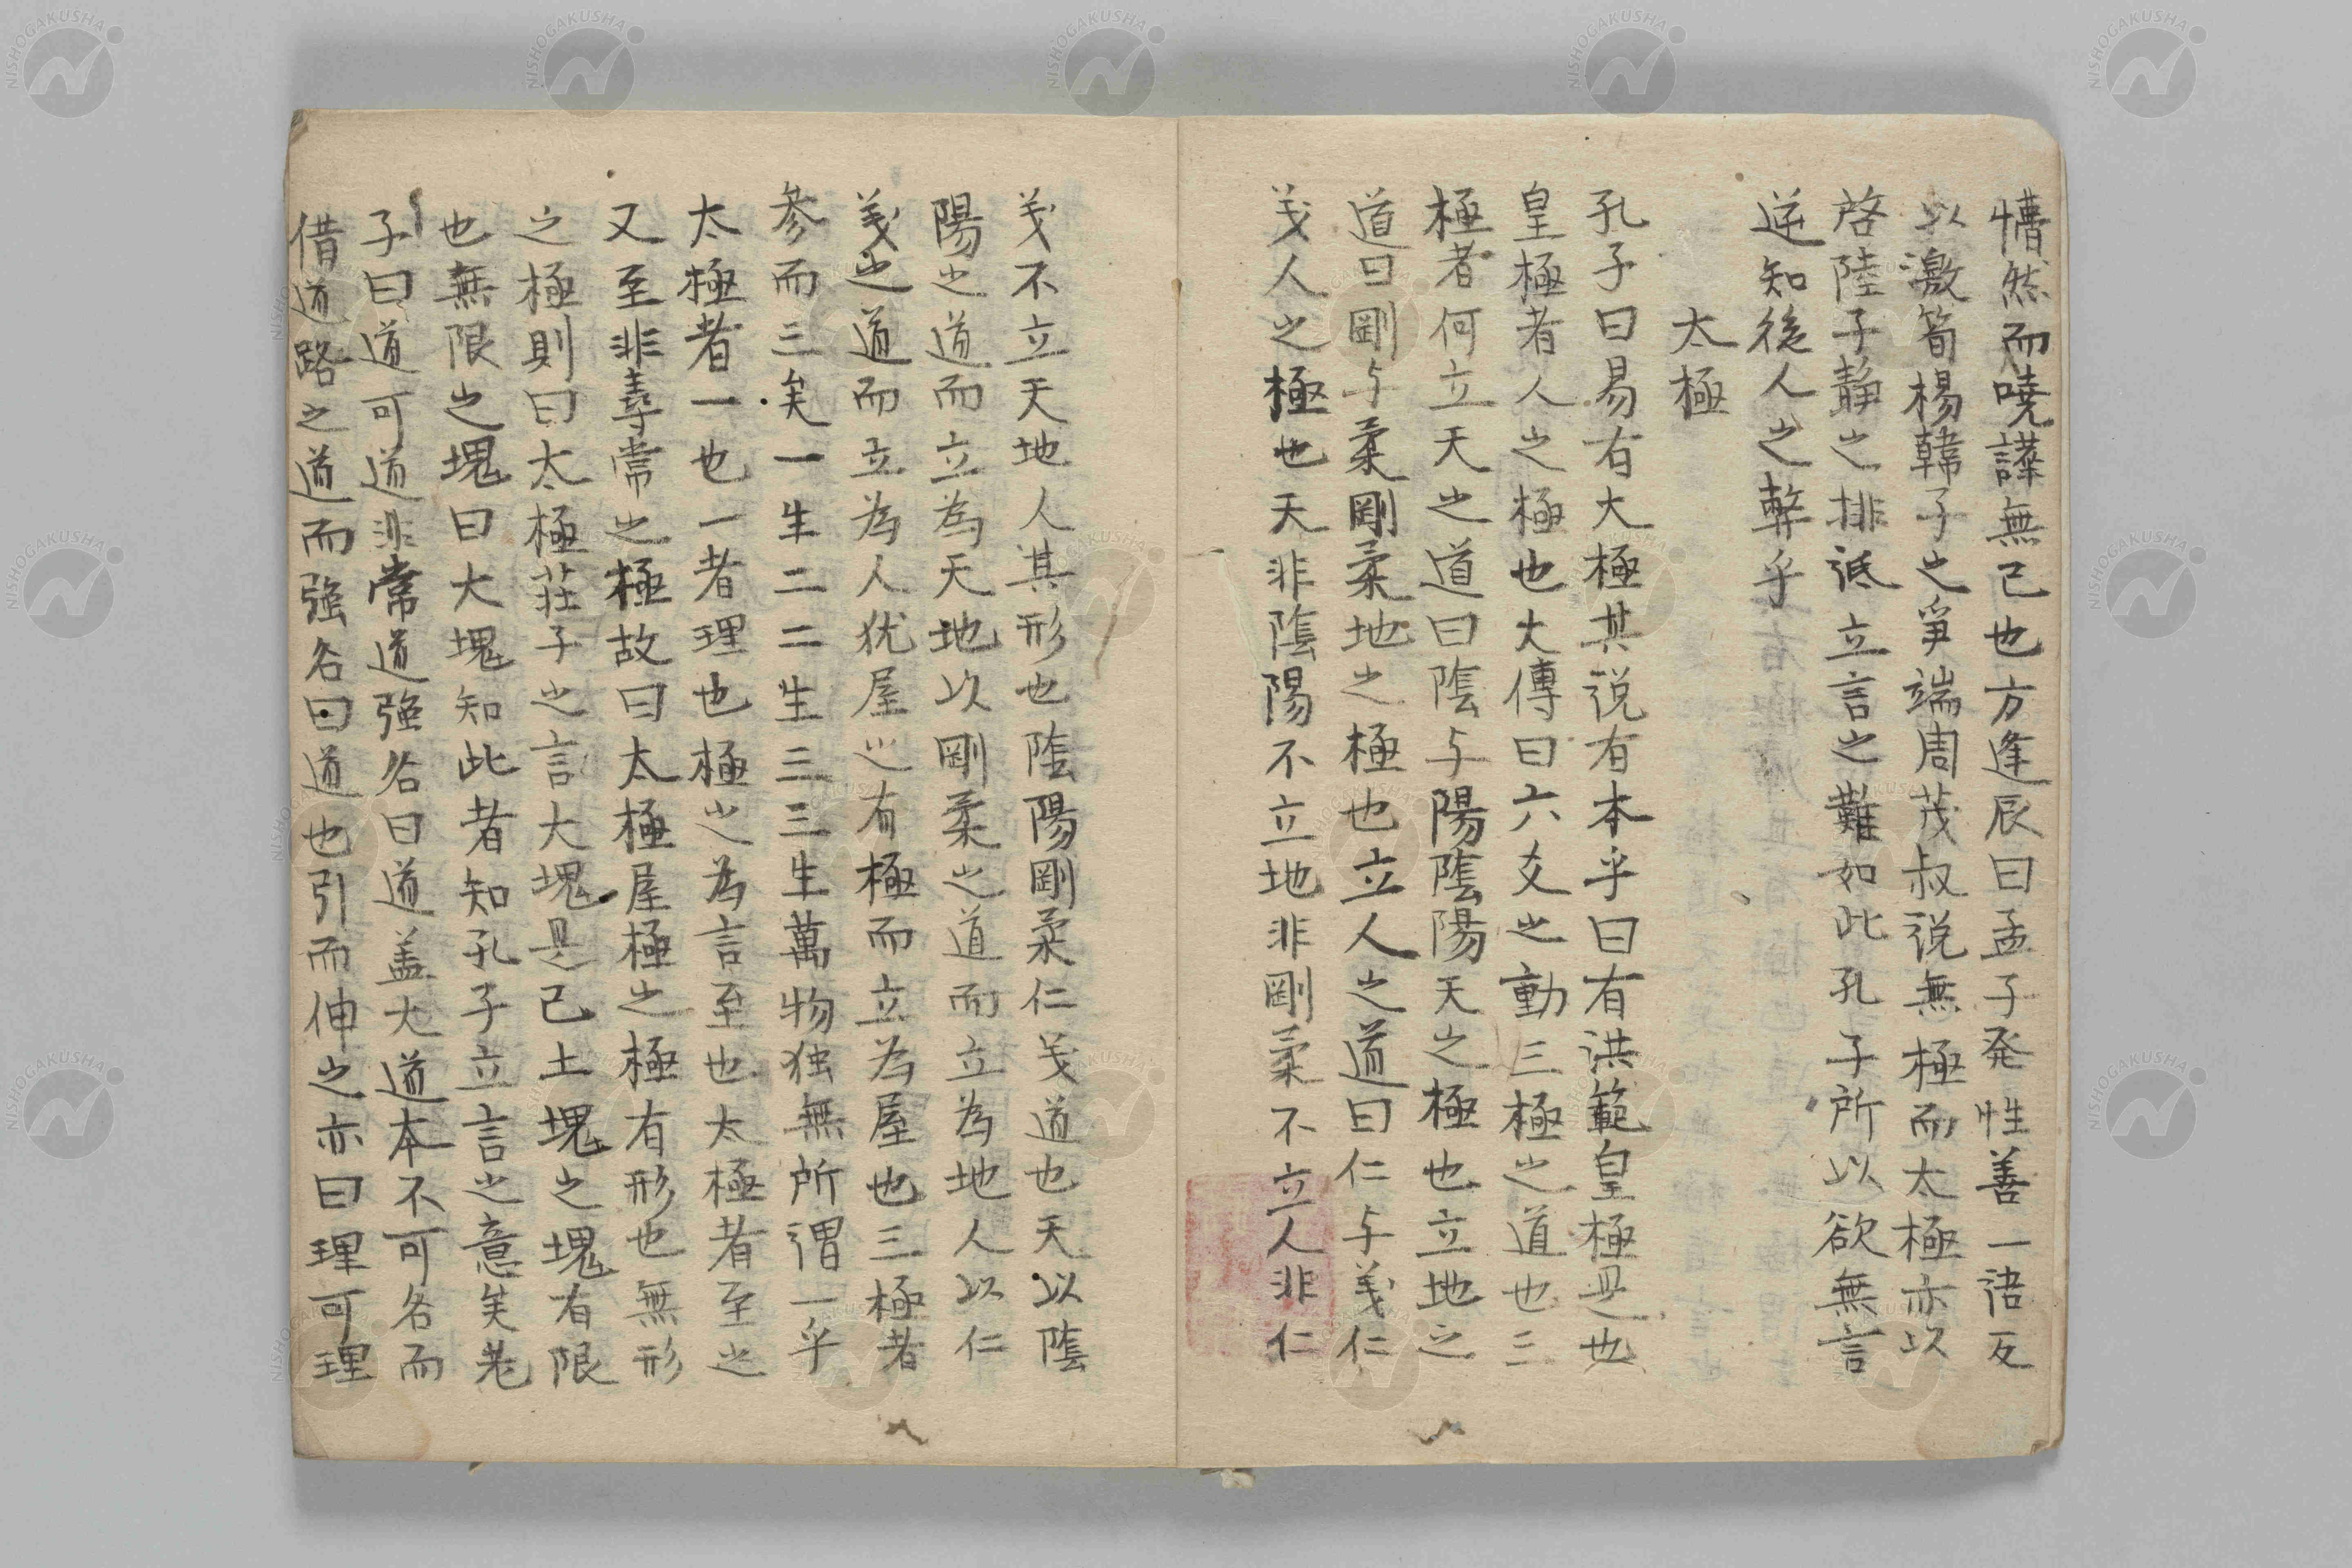 懵然而嘵譁無已也方逢辰曰孟子発性善一語反
以激筍楊韓子之爭端周茂叔説無極而太極亦以
啓陸子静之排詆立言之難如此孔子所以欲無言
逆知後人之弊乎
太極
孔子曰易有大極其説有本乎曰有洪範皇極是也
皇極者人之極也大傳曰六爻之動三極之道也三
極者何立天之道曰陰与陽陰陽天之極也立地之
道曰剛与柔剛柔地之極也立人之道曰仁与義仁
義人之極也天非陰陽不立地非剛柔不立人非仁
義不立天地人其形也陰陽剛柔仁義道也天以陰
陽之道而立為天地以剛柔之道而立為地人以仁
義之道而立為人犹屋之有極而立為屋也三極者
参而三矣一生二二生三三生萬物独無所謂一乎
太極者一也一者理也極之為言至也太極者至之
又至非尋常之極故曰太極屋極之極有形也無形
之極則曰太極荘子之言大塊是已土塊之塊有限
也無限之塊曰大塊知此者知孔子立言之意矣老
子曰道可道非常道強名曰道盖大道本不可名而
借道路之道而強名曰道也引而伸之亦曰理可理
八
八